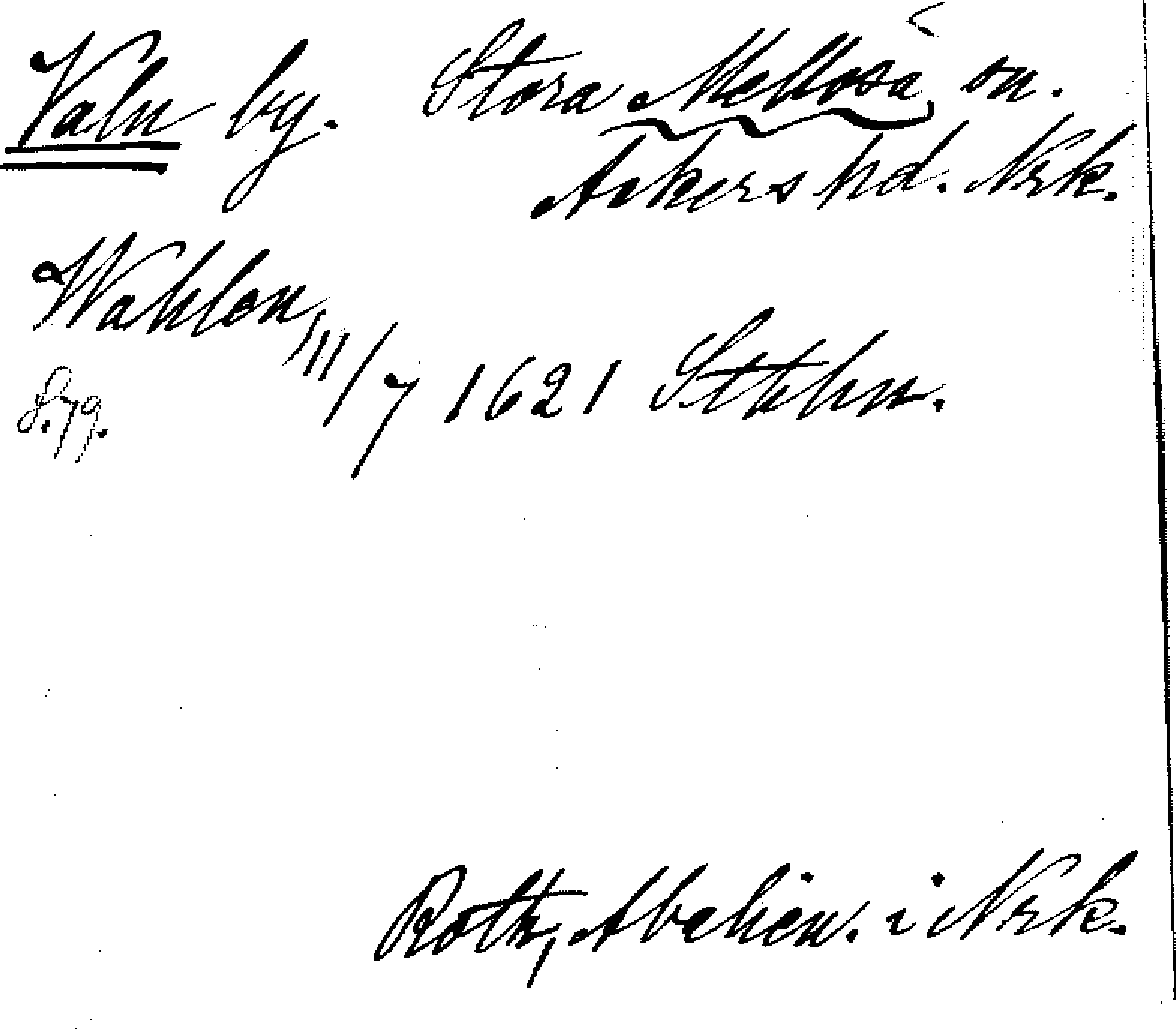 Valn by. Stora Mellösa sn.
Askers hd. Nrk.
Wahlon 11/7 1621 Sthlm.
S. 79.
Roth, Abalien. i Nrk.